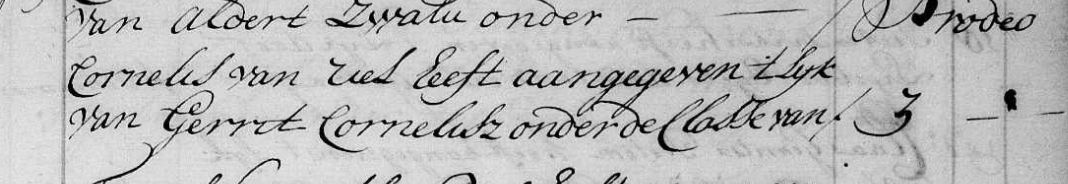 van Aldert Zwalu onder — — / Prodeo
Cornelis van Riel Eeft aangegeven t Lyk
van Gerrit Cornelisz onder de Classe van / 3 — " —